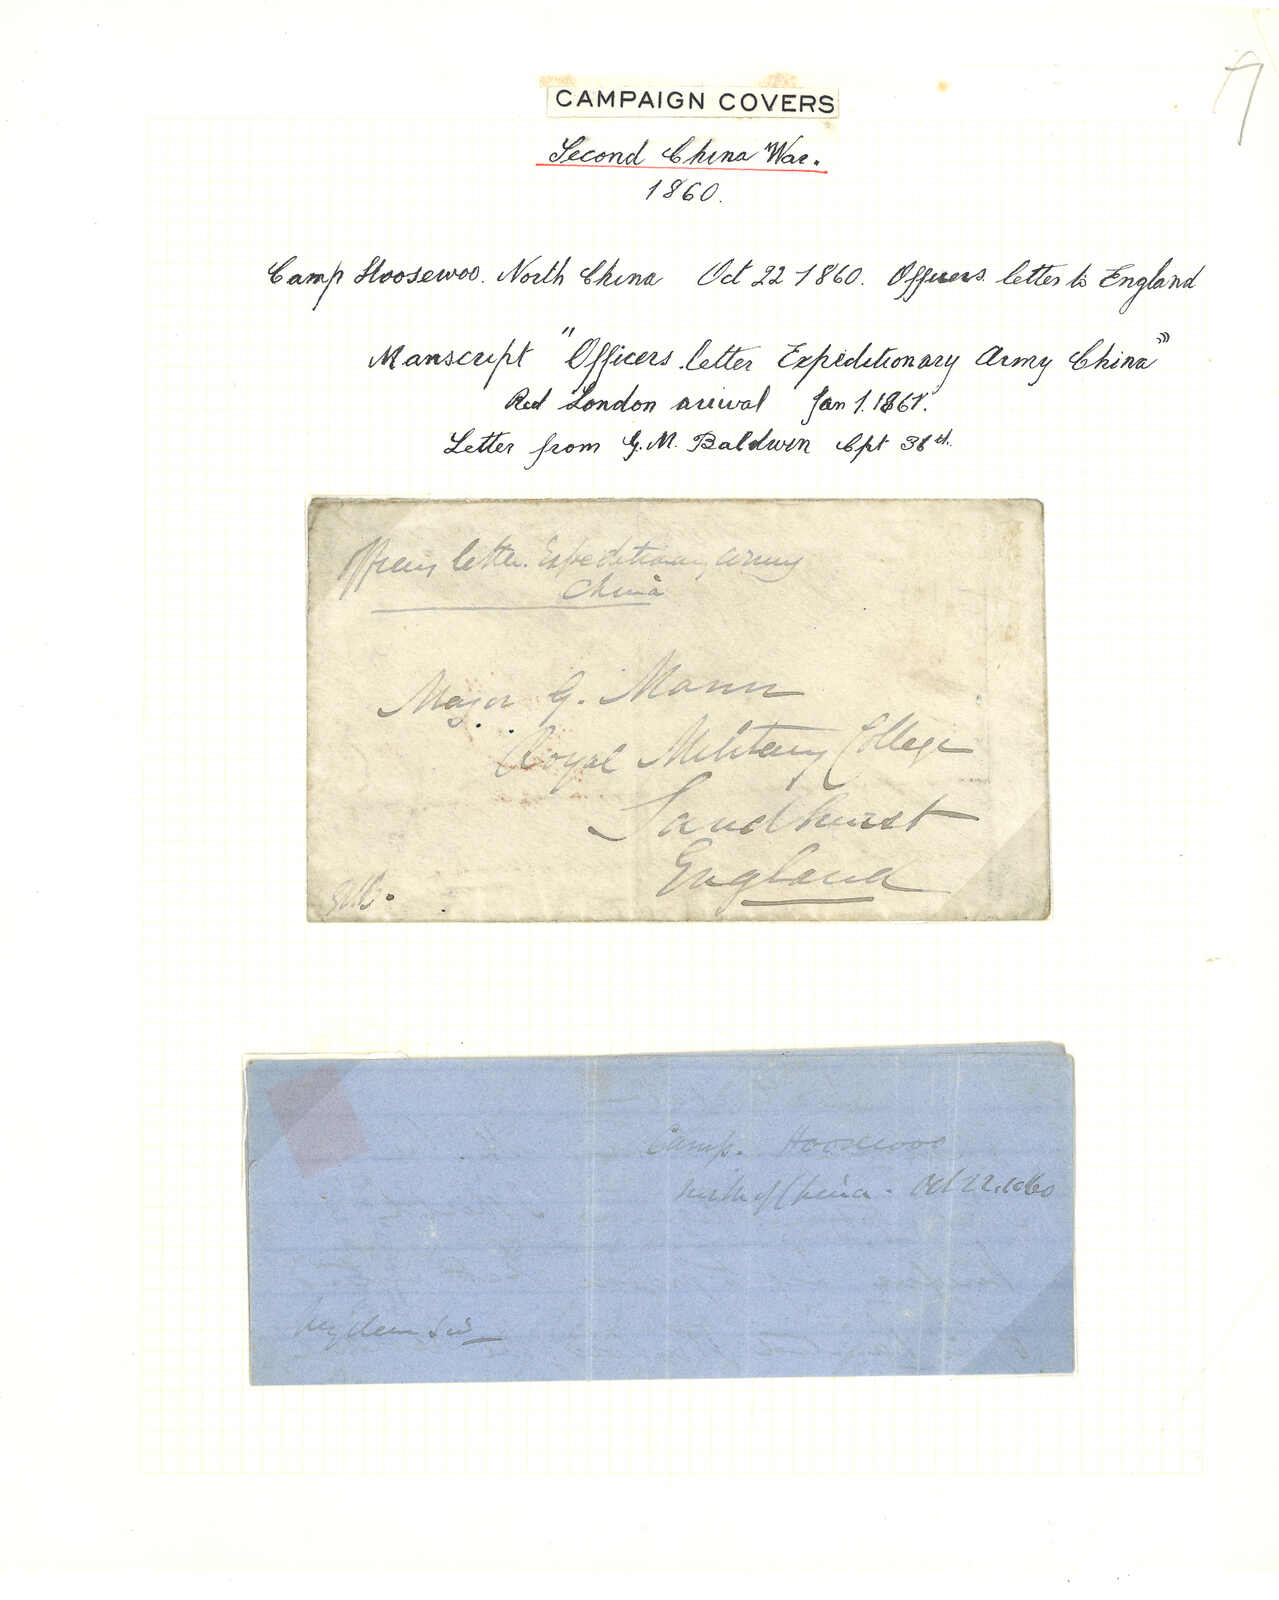 CAMPAIGN COVERS
Second China War.
1860.
Camp Hoosewoo. North China Oct 22 1860. Officers letter to England
Manscript "Officers letter Expeditionary Army China"
Red London arrival Jan 1. 1861.
Letter from G. M. Baldwin Cpt 31st.
Officers letter. Expeditionary Army
China
Major G. Mann
Royal Military College
Sandhurst
England
Camp. Hoosewoo
North of China. Oct 22. 1860
My dear Sir